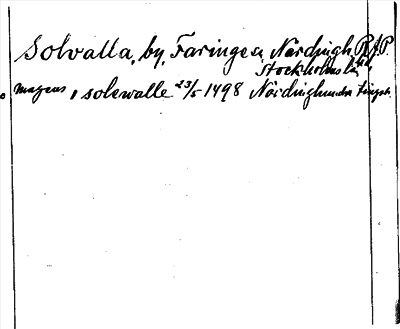 Solvalla, by, Faringe s:n Närdingh. RAP.
Stockholms län
magnus i solewalle 23/5 1498 Närdinghundra tingst.